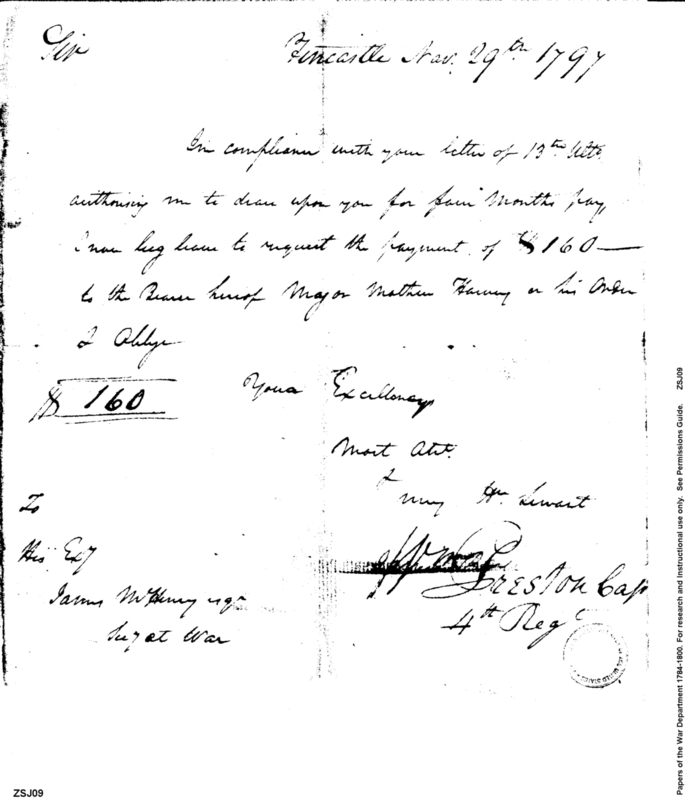 Sir
Fincastle Nov. 29th 1797
In compliance with your letter of 13th Ulto.
authorising me to draw upon you for four Months pay,
I now beg leave to request the payment of $160—
to the Bearer hereof Major Mathew Harvey or his Order
& Oblige
$ 160
Your Excellencys
Most Obt.
&
very Hm. Servant
To
His Exy
James McHenry esqr
Secy at War
Preston Cap
4th Regt
ZSJ09
Papers of the War Department 1784-1800. For research and instructional use only. See Permissions Guide. ZSJ09